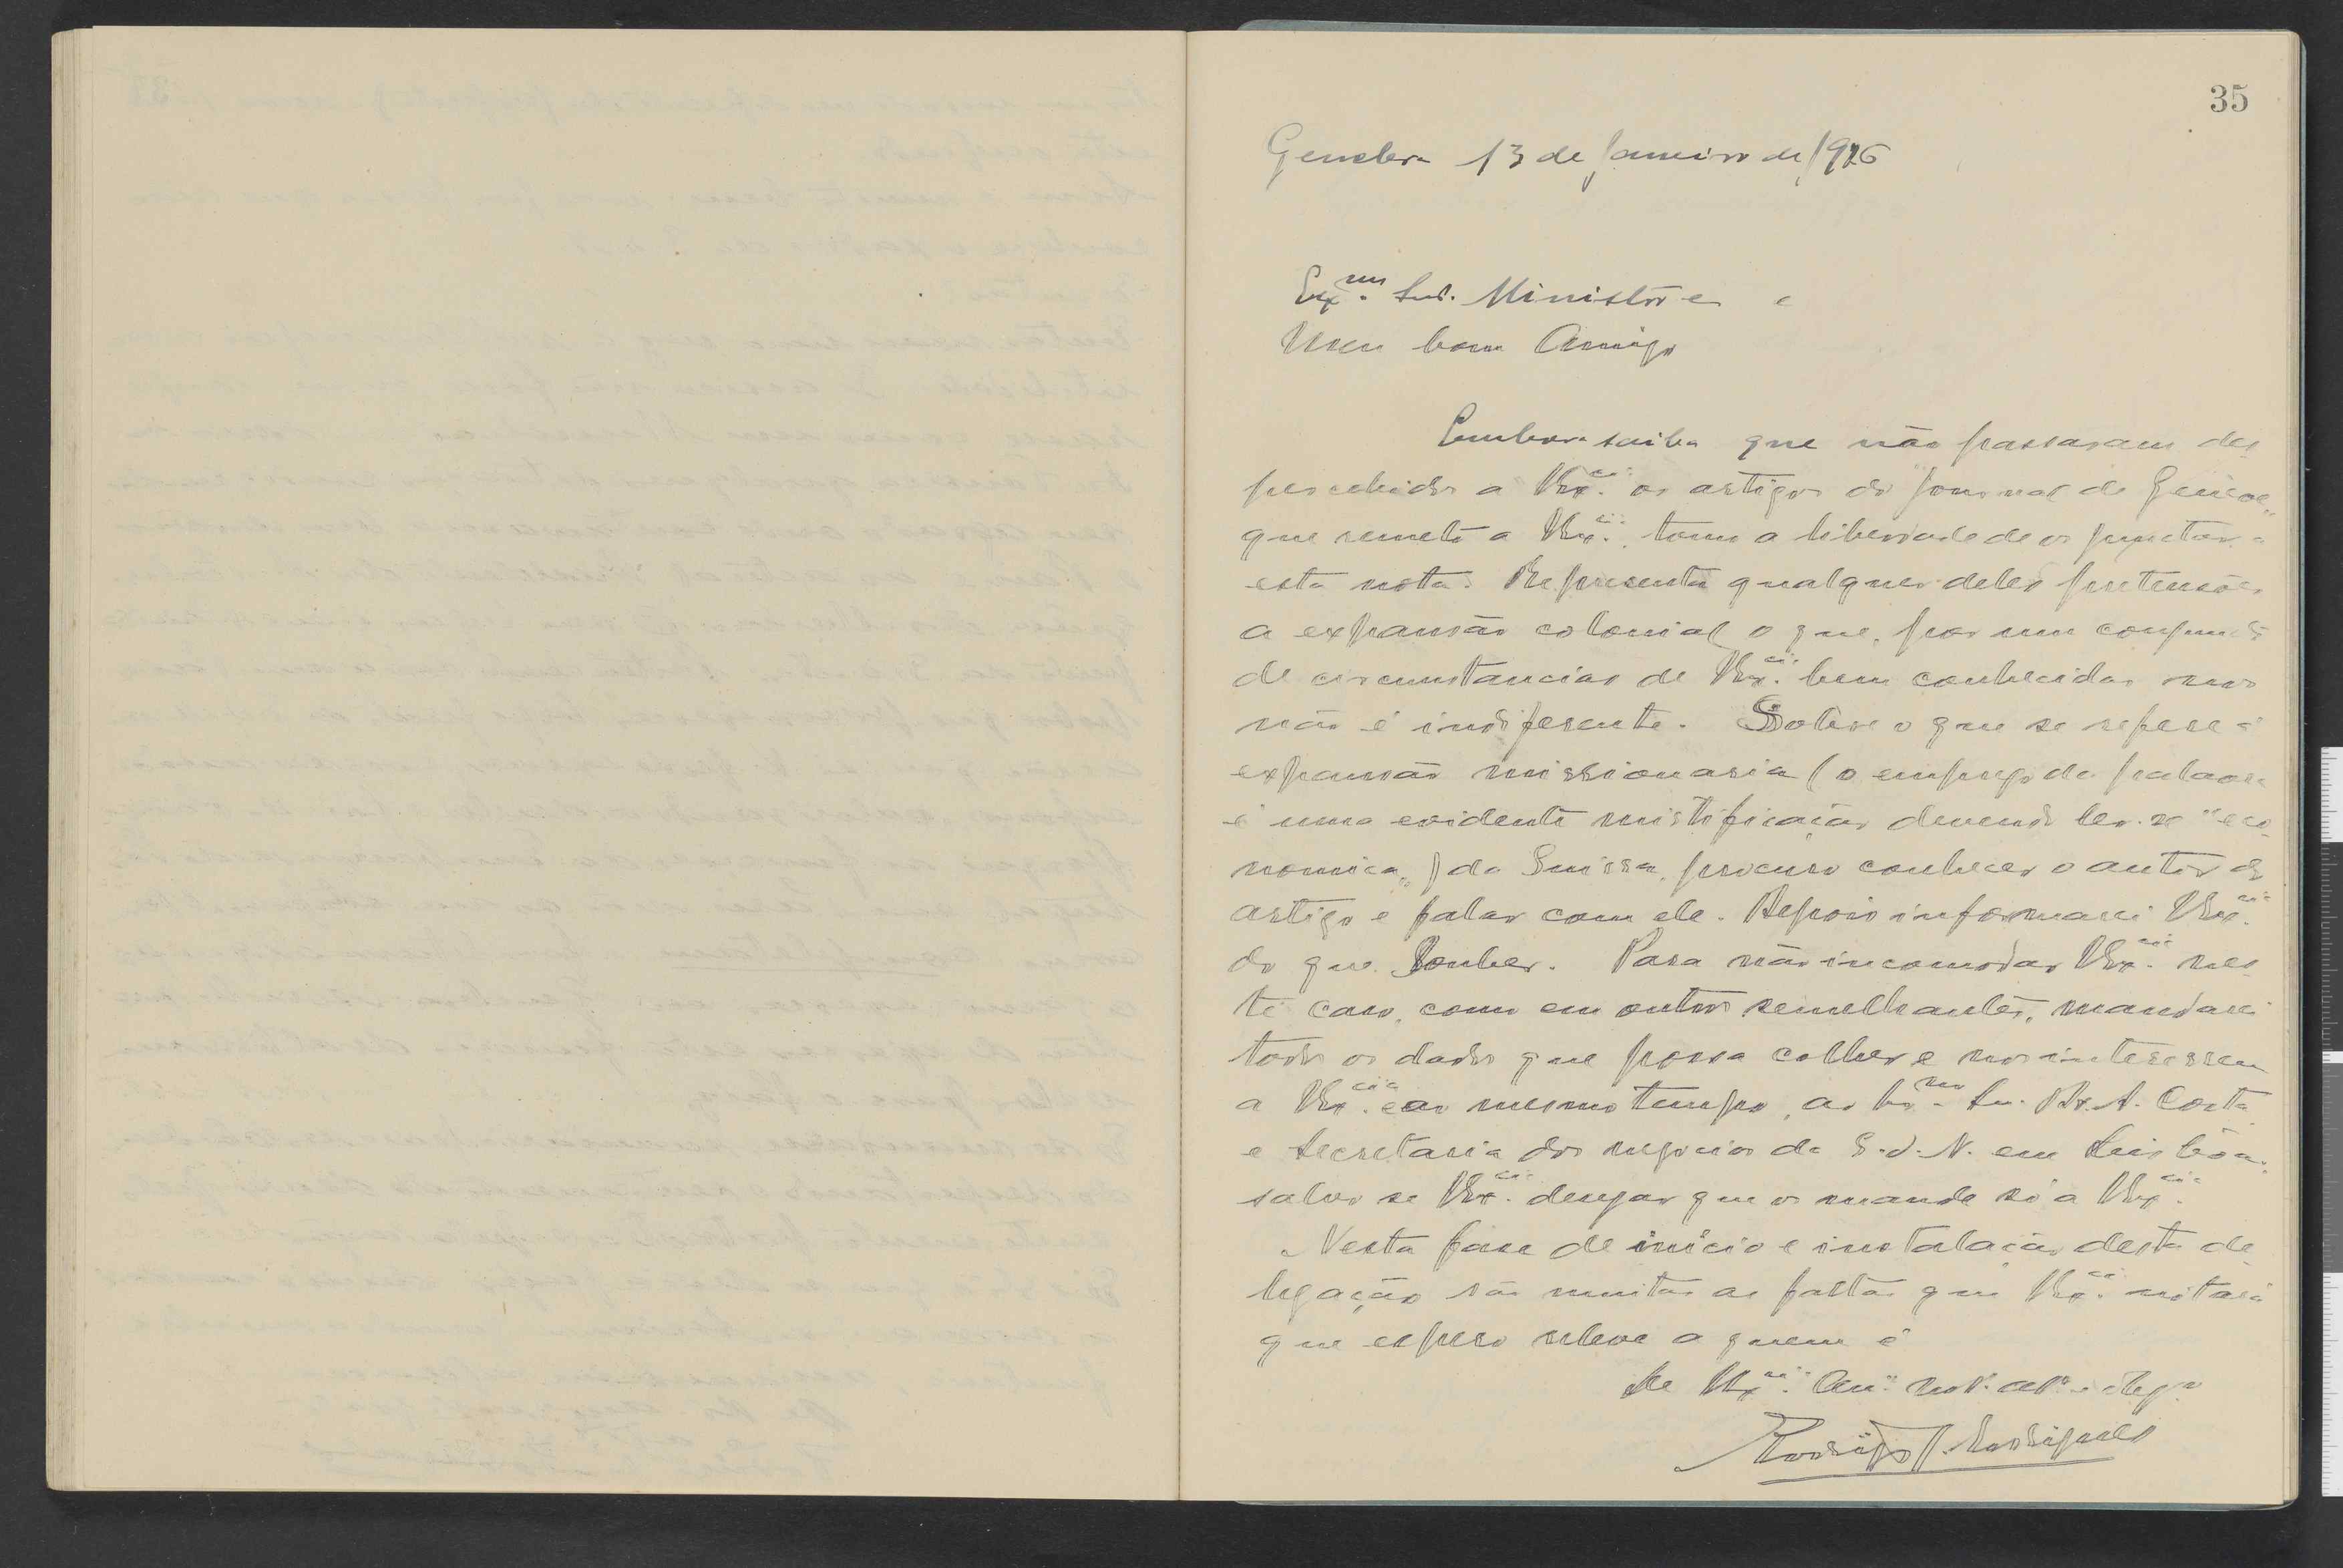 35
Genebra 13 de Janeiro de 1926
Exmo. Snr. Ministro e
Meu bom Amigo
Embora saiba que não passaram des
percebidos a V.Ex.cia os artigos do "Journal de Genève"
que remeto a V.Ex.cia, tomo a liberdade de os juntar a
esta nota. Representa qualquer deles pretensões
a expansão colonial o que, por um conjunto
de circumstancias de V.Ex.cia bem conhecidas nos
não é indiferente. Sobre o que se refere á
expansão missionaria (o emprego da palavra
é uma evidente mistificação devendo ler-se "eco
nomica") da Suissa, procuro conhecer o autor do
artigo e falar com ele. Depois informarei V.Ex.cia
do que souber. Para não incomodar V.Ex.cia nes
te caso, como em outros semelhantes, mandarei
todos os dados que possa colher e nos interessem
a V.Ex.cia e ao mesmo tempo, ao Snr. Dr. A. Costa
e Secretaria dos negocios da S.d.N. em Lisbôa,
salvo se V.Ex.cia desejar que os mande só a V.Ex.cia
Nesta fase de inicio e instalação desta de
legação são muitas as faltas que V.Ex.cia notará
que espero releve a quem é
De V.Ex.cia
Rodrigo J. Rodrigues